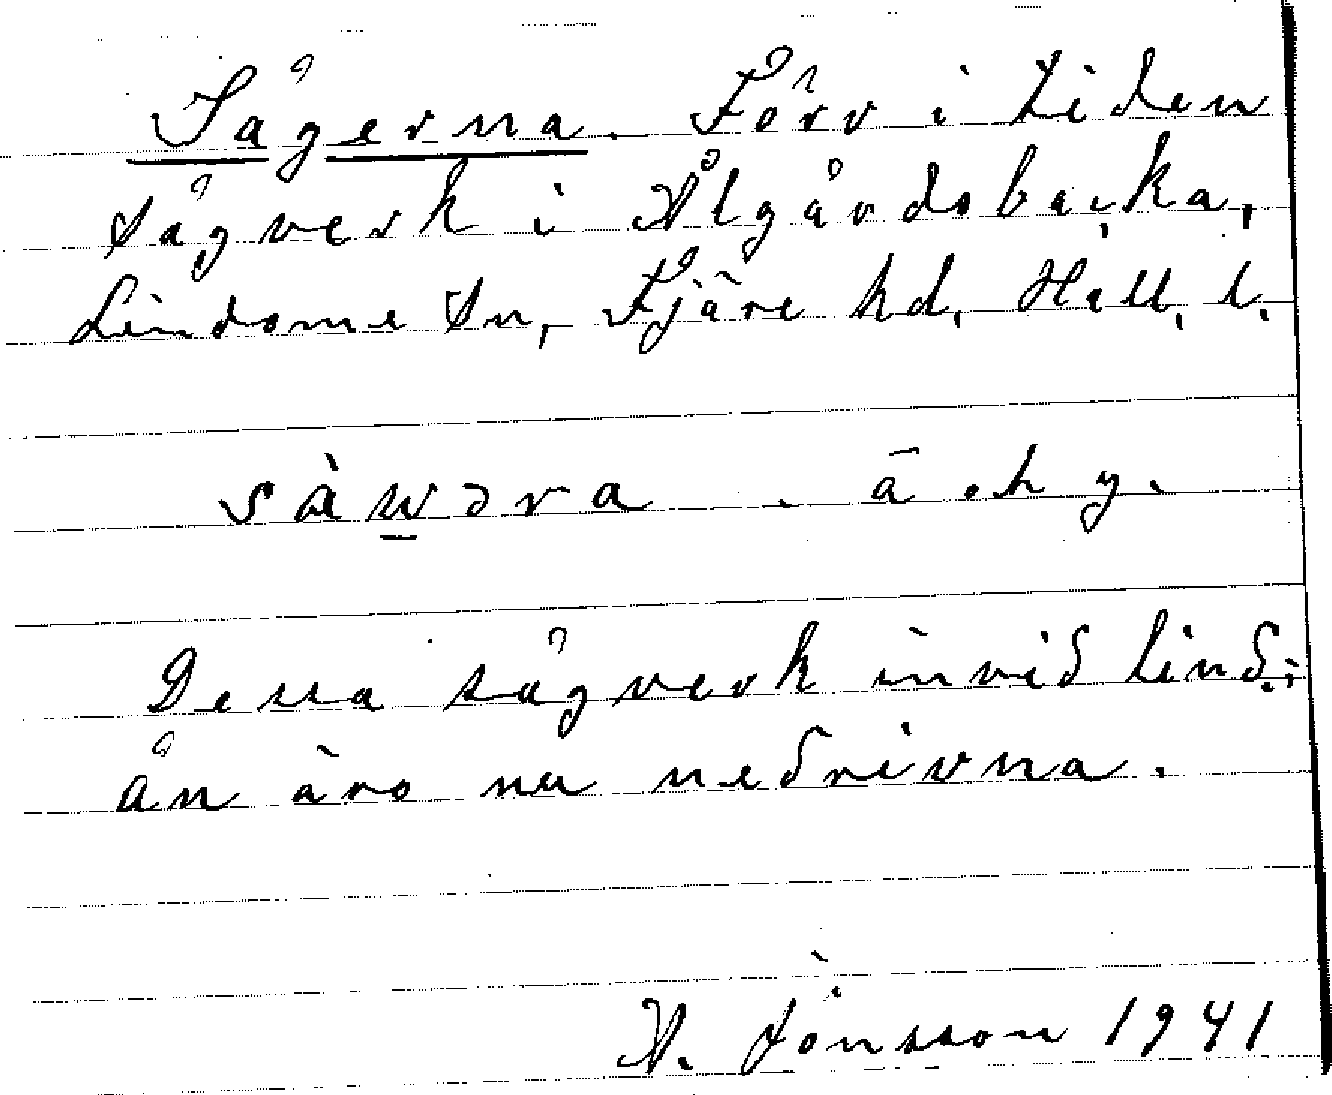 Sågerna. Förv i tiden
sågverk i Ålgårdsbacka,
Lindome sn, Fjäre hd, Hall. l.
sàwəra . ā . h y.
Dessa sågverk invid Lind.-
ån äro nu nedrivna.
A. Jönsson 1941